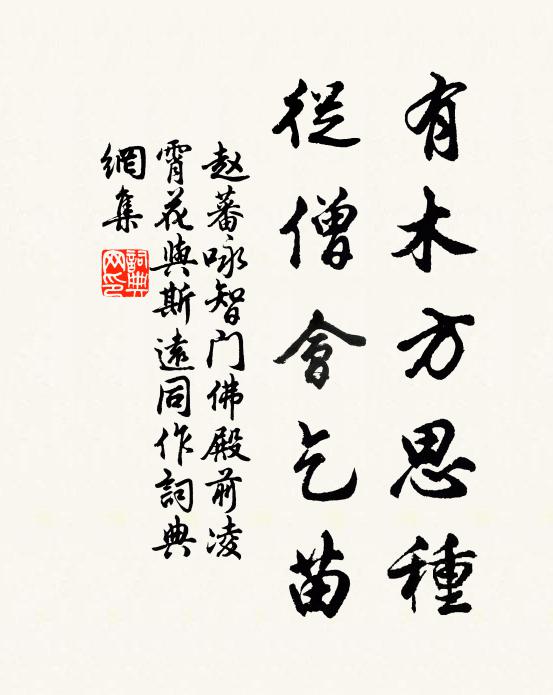 有木方思種
從僧會乞苗
赵蕃咏智门佛殿前凌
霄花與斯遠同作詞典
網集
詞典網印